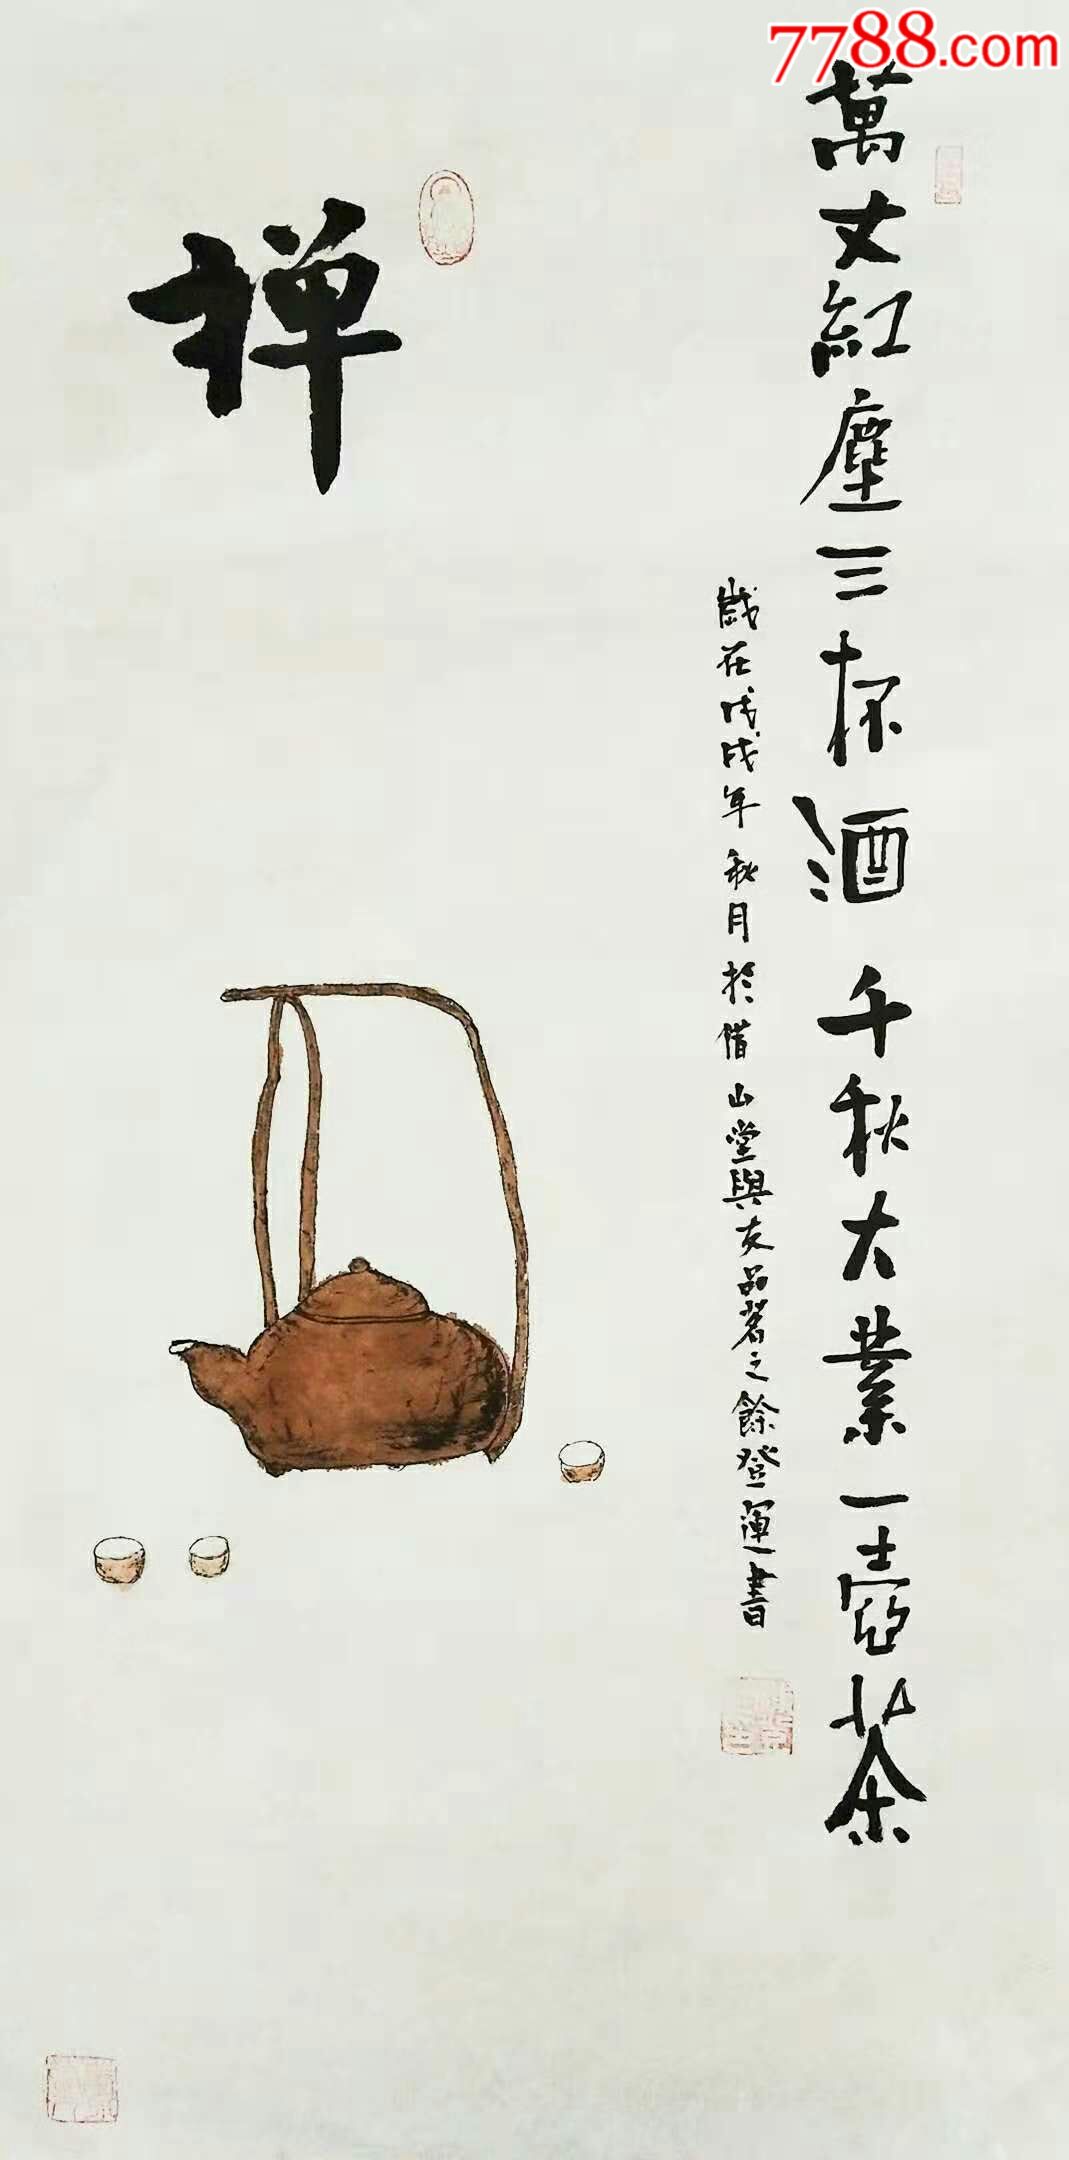 7788.com
萬丈紅塵三杯酒千秋大業一壺茶
歲在戊戌年秋月於借山堂與友品茗之餘登運書
禅